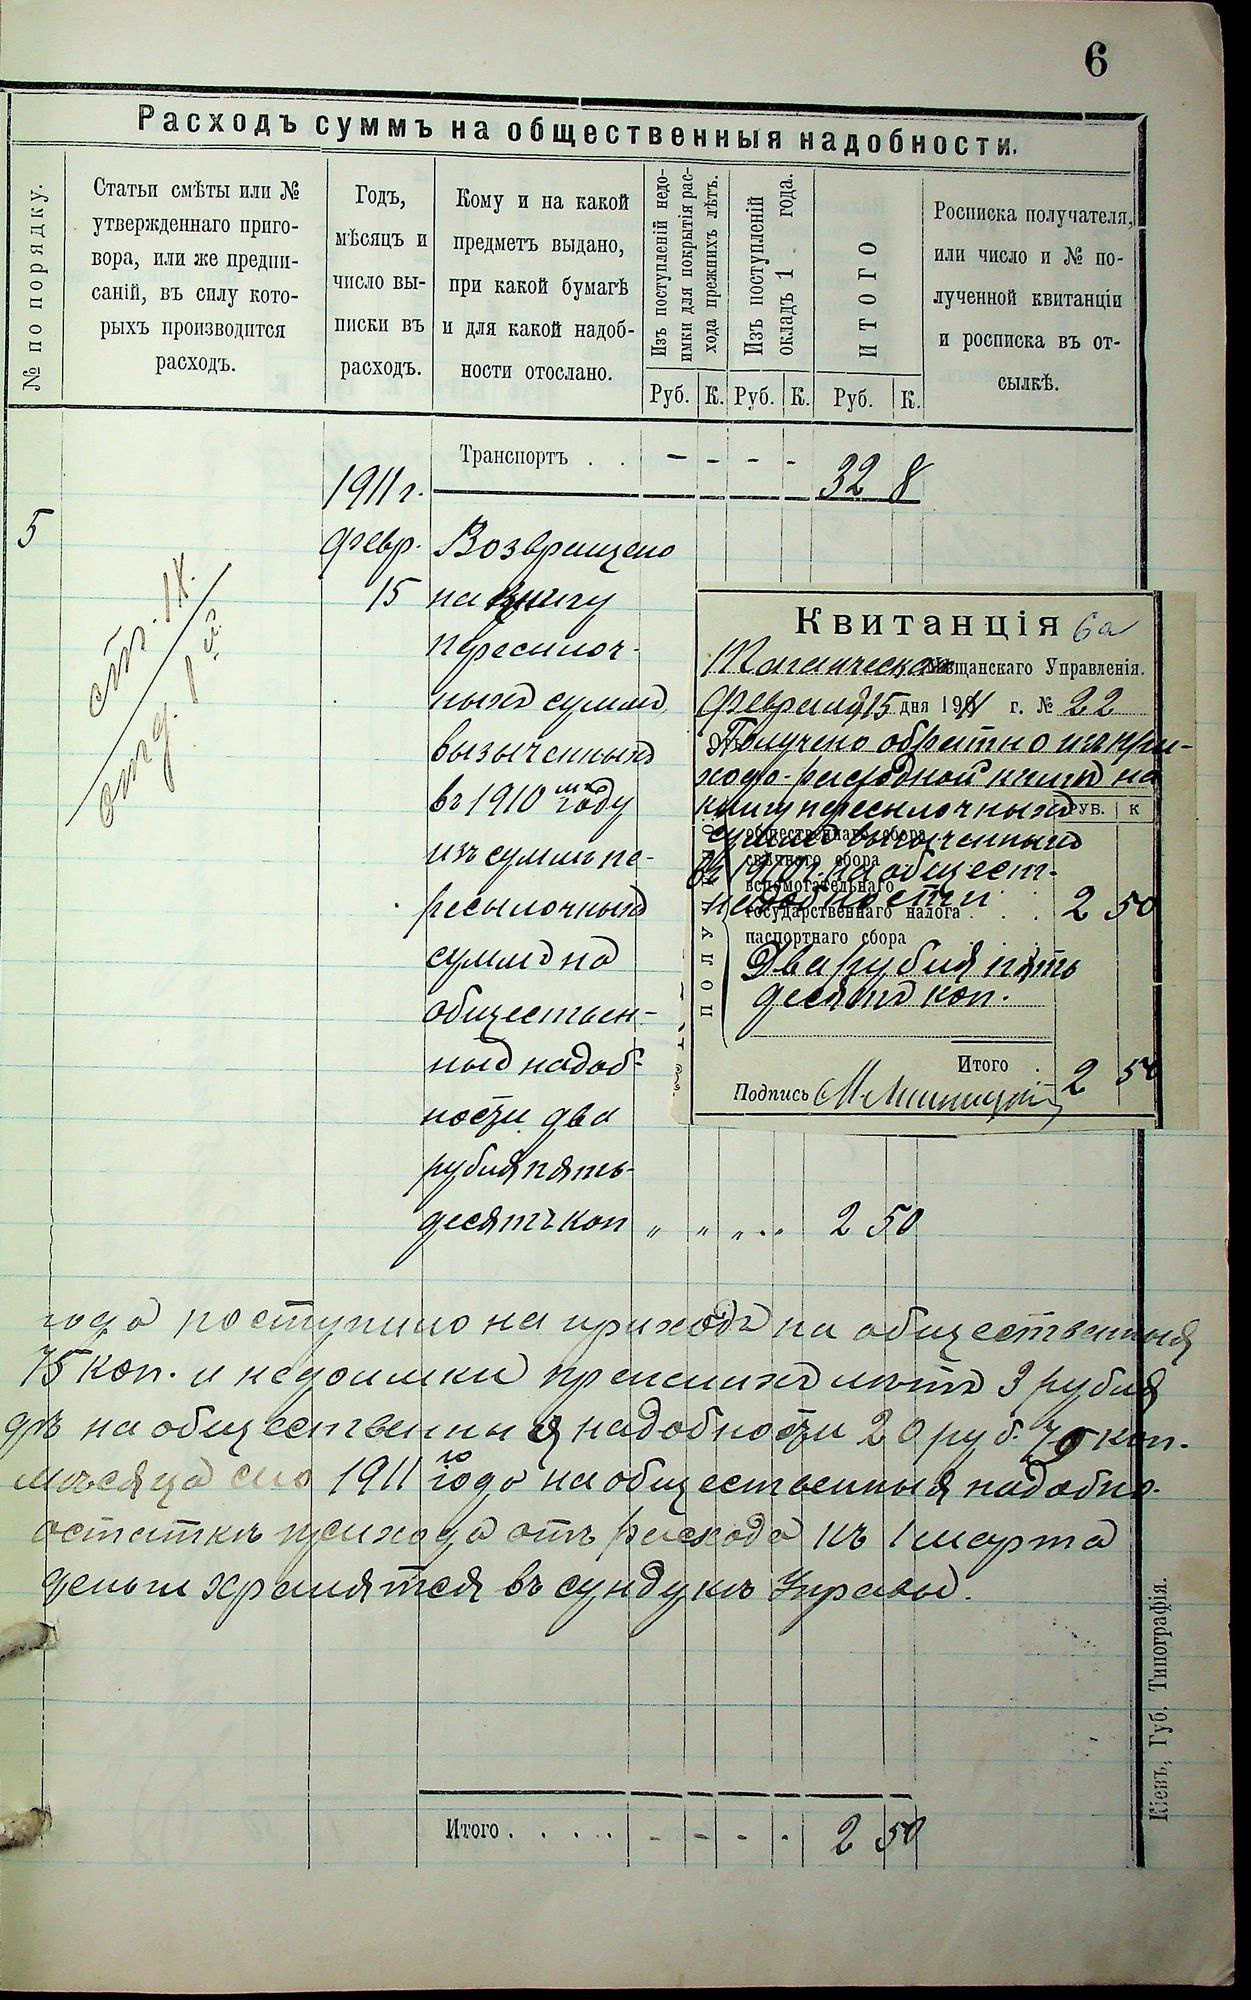 6
Расходъ суммъ на общественныя надобности.
№ по порядку.
Статьи смѣты или № утвержденнаго приго-
вора, или же предпи-
саній, въ силу кото-
рыхъ производится
расходъ.
Годъ,
мѣсяцъ и
число вы-
писки въ
расходъ.
Кому и на какой
предметъ выдано,
при какой бумагѣ
и для какой надоб-
ности отослано.
Изъ поступленій недо-
имки для покрытія рас-
хода прежнихъ лѣтъ.
Изъ поступленій
окладъ 1 года.
ИТОГО
Росписка получателя,
или число и № по-
лученной квитанціи
и росписка въ от-
сылкѣ.
Руб. К. Руб. К. Руб. К.
Транспортъ . . - - - - 32 8
1911 г.
5
февр. Возвращено
15 на книгу
пересылоч-
ныхъ суммъ,
ст. IX.
отд. 1
в 1910 году
изъ суммъ пе-
ресылочныхъ
суммъ на
обществен-
ныя надоб-
ности два
рубля пять-
десятъ коп „ „ „ .. 2 50
Квитанція 6а
Мѣщанскаго Управленія.
Февраля 15 дня 1911 г. № 22
Получено обратно изъ при-
ходо-расходной книги на
книгу пересылочныхъ
РУБ. К
суммъ
общественнаго сбора
свѣчного сбора
въ 1910 г. на общест.
вспомогательнаго
надобности 2 50
государственнаго налога . . .
паспортнаго сбора
ПОЛУЧЕНО:
Два рубля пять
десятъ коп.
Итого . 2 50
Подпись
года поступило на приходъ на общественныя
75 коп. и недоимки прежнихъ лѣтъ 3 рубля
дъ на общественныя надобности 20 руб. 70 коп.
мѣсяца сего 1911 го года на общественныя надобно-
остаткъ прихода отъ расхода къ 1 марта
деньги хранятся въ сундукѣ Управы.
Итого . . . . . - - - . 2 50
Кіевъ, Губ. Типографія.